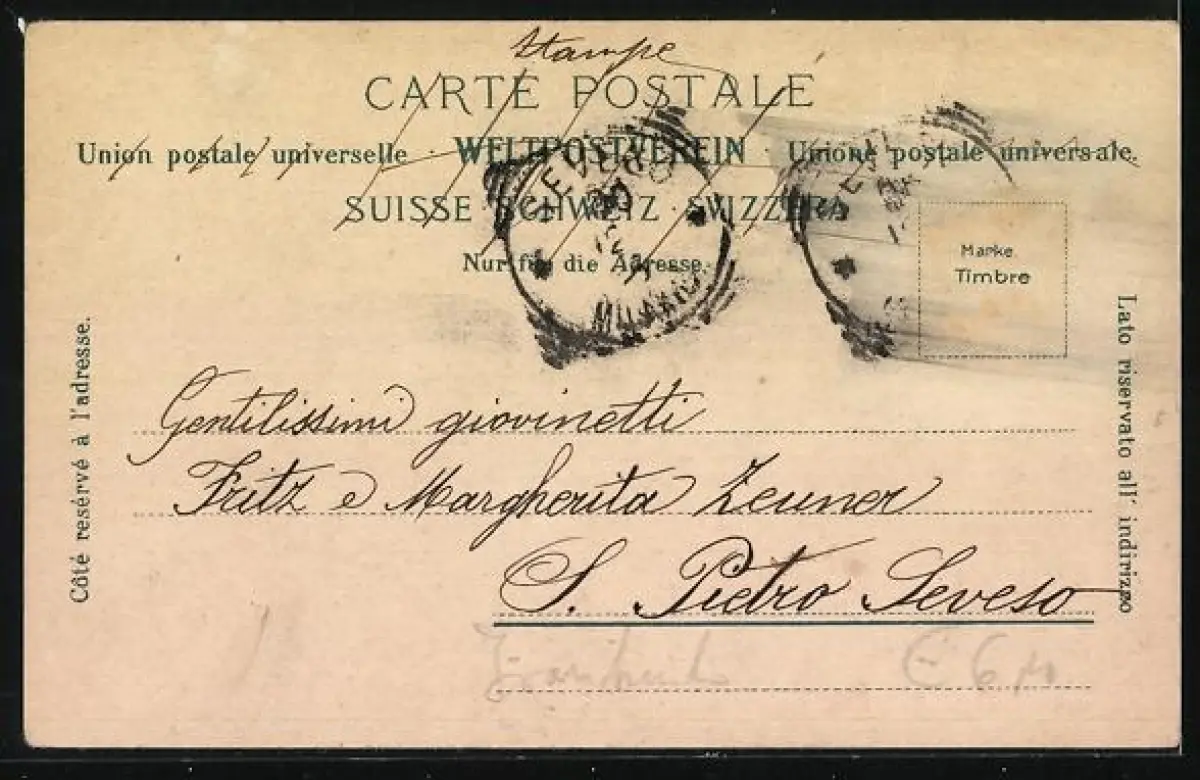 Stampe
CARTE POSTALE
Union postale universelle · WELTPOSTVEREIN · Unione postale universale.
SUISSE SCHWEIZ SVIZZERA
Nur für die Adresse.
SEVESO
MILANO
Marke
Timbre
Côté resérvé à l'adresse.
Lato riservato all' indirizzo
Gentilissimi giovinetti
Fritz e Margherita Zeuner
S. Pietro Seveso